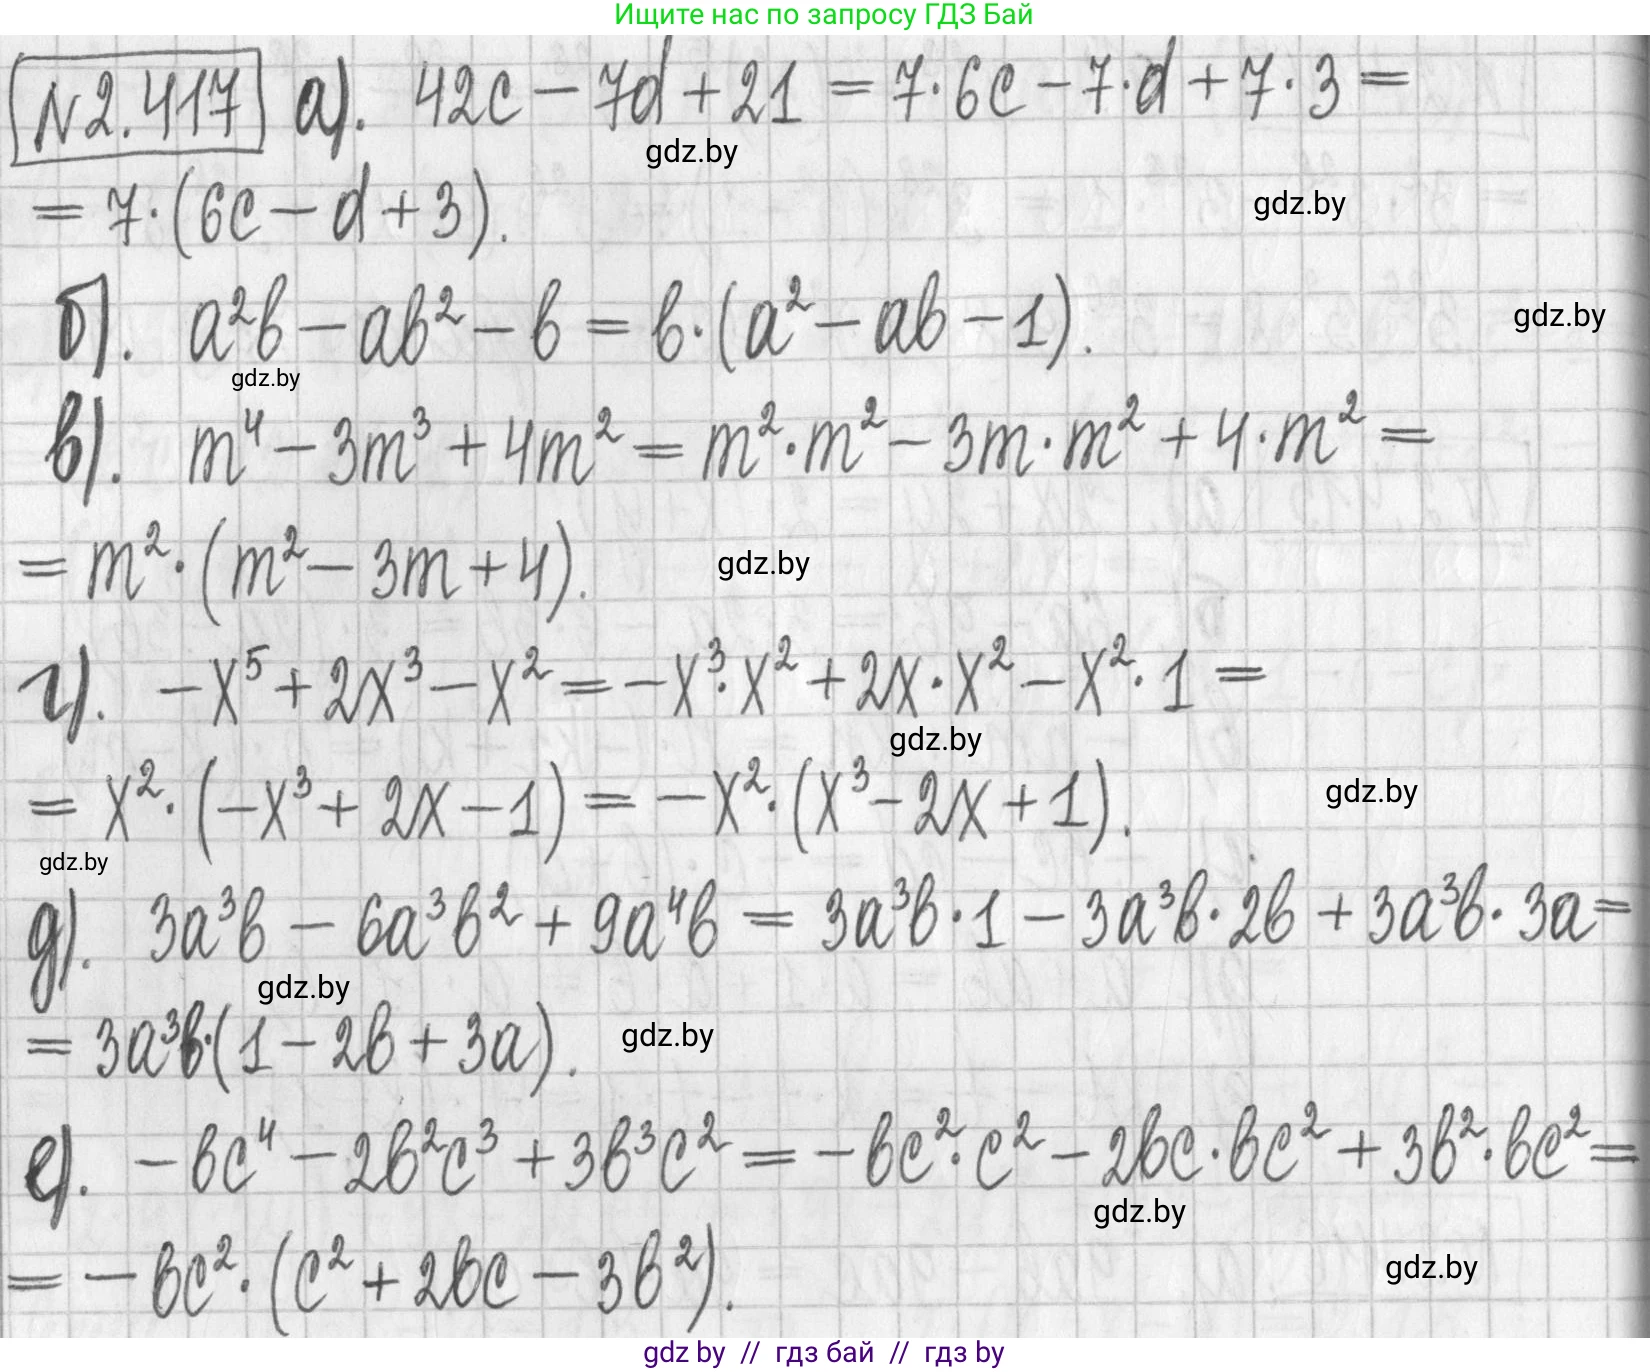 Ищите нас по запросу ГДЗ Бай
N2.417 а). 42c − 7d + 21 = 7·6c − 7·d + 7·3 =
gdz.by
= 7·(6c − d + 3).
gdz.by
б). a²b − ab² − b = b·(a² − ab − 1).
gdz.by
gdz.by
в). m⁴ − 3m³ + 4m² = m²·m² − 3m·m² + 4·m² =
= m²·(m² − 3m + 4).
gdz.by
г). −x⁵ + 2x³ − x² = −x³·x² + 2x·x² − x²·1 =
gdz.by
= x²·(−x³ + 2x − 1) = −x²·(x³ − 2x + 1).
gdz.by
gdz.by
д). 3a³b − 6a³b² + 9a⁴b = 3a³b·1 − 3a³b·2b + 3a³b·3a =
gdz.by
= 3a³b·(1 − 2b + 3a).
gdz.by
е). −bc⁴ − 2b²c³ + 3b³c² = −bc²·c² − 2bc·bc² + 3b²·bc² =
gdz.by
= −bc²·(c² + 2bc − 3b²).
gdz.by
gdz by // гдз бай // гдз by